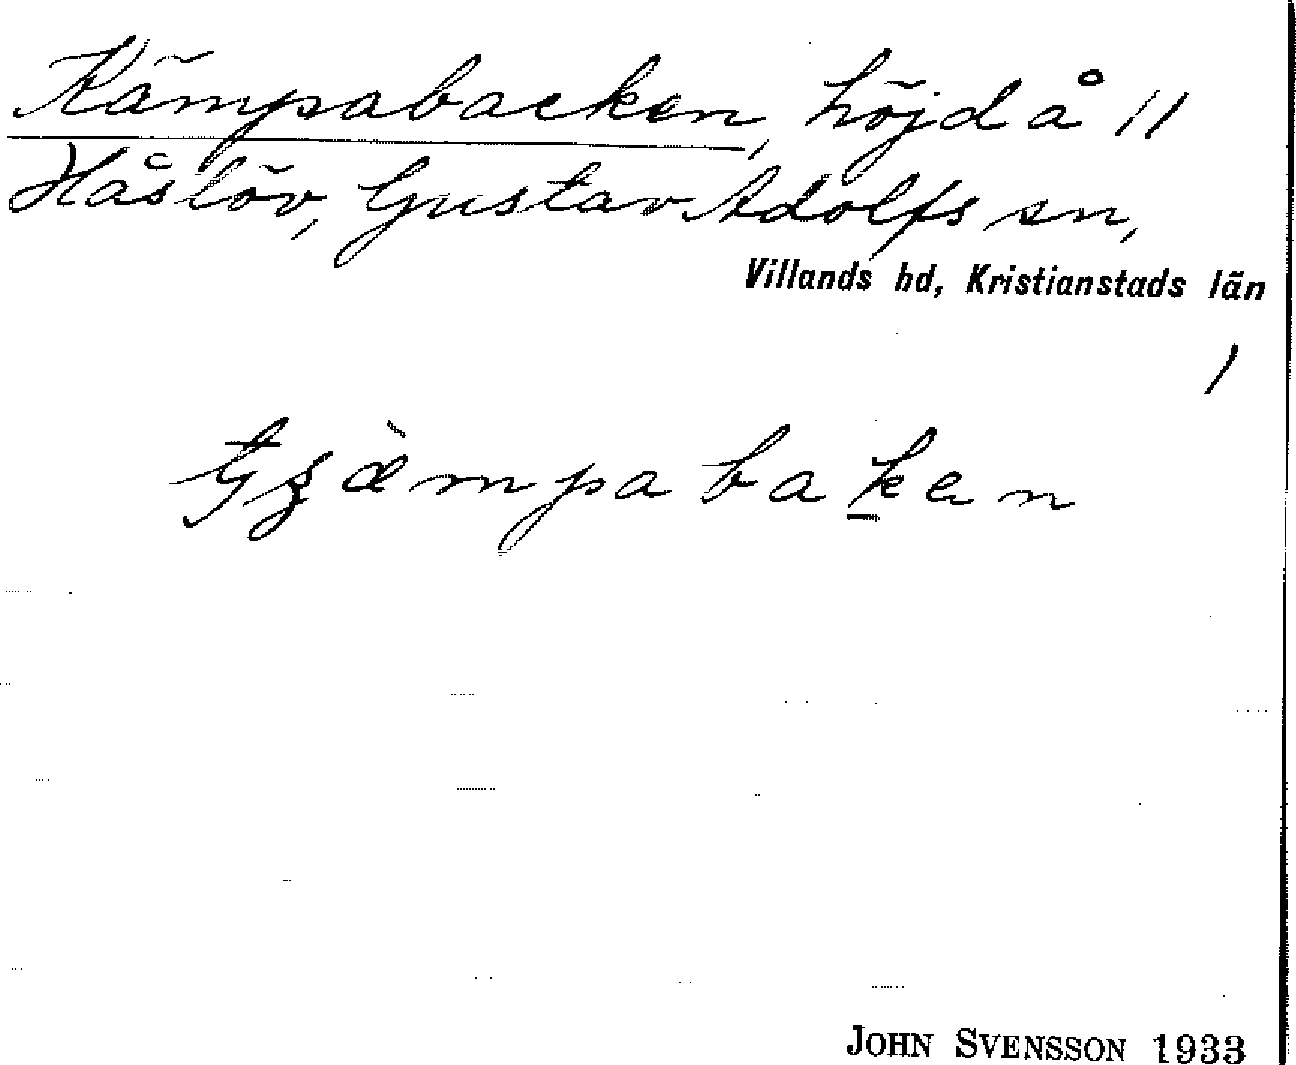 Kämpabacken, höjd å 11
Håslöv, Gustav Adolfs sn,
Villands hd, Kristianstads län
1
kämpabaken
JOHN SVENSSON 1933